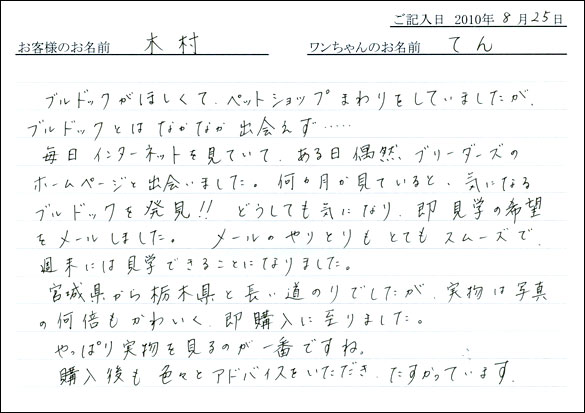 ご記入日 2010年 8月 25日
お客様のお名前 木村 ワンちゃんのお名前 てん
ブルドックがほしくて、ペットショップまわりをしていましたが、
ブルドックとはなかなか出会えず‥‥‥
毎日インターネットを見ていて、ある日偶然、ブリーダーズの
ホームページと出会いました。何ヶ月か見ていると、気になる
ブルドックを発見!! どうしても気になり、即見学の希望
をメールしました。 メールのやりとりもとてもスムーズで、
週末には見学できることになりました。
宮城県から栃木県と長い道のりでしたが、実物は写真
の何倍もかわいく、即購入に至りました。
やっぱり実物を見るのが一番ですね。
購入後も色々とアドバイスをいただき、たすかっています。